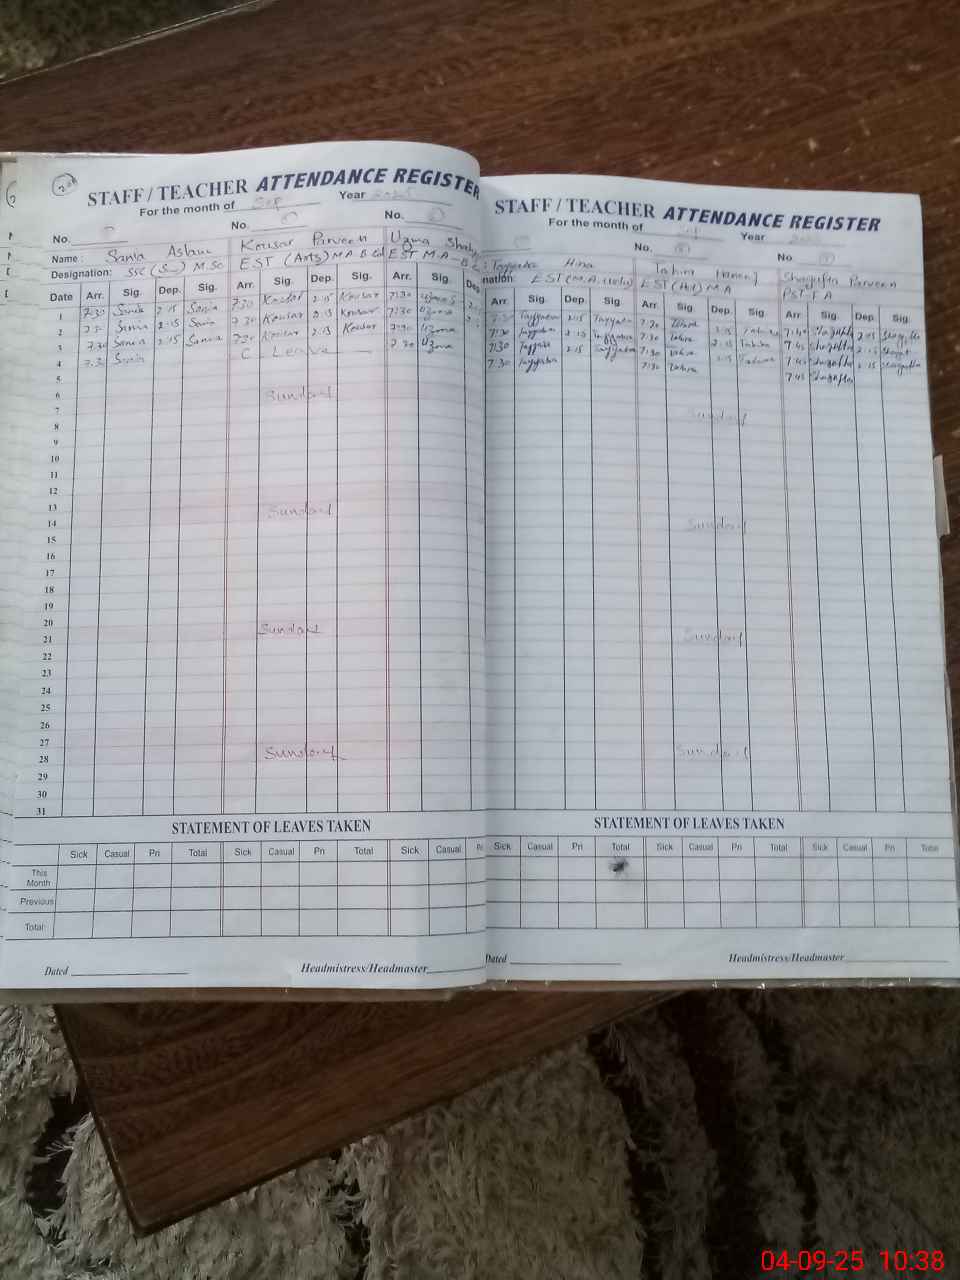 STAFF / TEACHER ATTENDANCE REGISTER
For the month of Sep Year 2025
No. No. No.
Name: Sania Aslam Kousar Parveen Uzma
Designation: M.Sc EST (Arts) M A B Ed EST M.A
Date Arr. Sig. Dep. Sig. Arr. Sig. Dep. Sig. Arr. Sig. Dep
1 7:30 Sania 2:15 Sania 7:30 Kousar 2:15 Kousar 7:30 Uzma
2 Sania 2:15 Sania 7:30 Kousar 2:15 Kousar 7:30 Uzma
3 7:30 Sania 2:15 Sania 7:30 Kousar 2:15 Kousar 7:30 Uzma
4 7:30 Sania C Leave 7:30 Uzma
5
6
7 Sunday
8
9
10
11
12
13
14 Sunday
15
16
17
18
19
20
21 Sunday
22
23
24
25
26
27
28 Sunday
29
30
31
STATEMENT OF LEAVES TAKEN
Sick Casual Pri Total Sick Casual Pri Total Sick Casual
This Month
Previous
Total
Dated Headmistress/Headmaster
STAFF / TEACHER ATTENDANCE REGISTER
For the month of Sep Year
No. No
Tayyaba Hina Tahira Shagufta Parveen
nation: EST (M.A, Urdu) EST M A PST F A
Arr. Sig. Dep. Sig. Arr. Sig. Dep. Sig. Arr Sig. Dep. Sig.
7:30 Tayyaba 2:15 Tayyaba 7:30 Tahira 2:15 Tahira 7:45 Shagufta 2:15 Shagufta
7:30 Tayyaba 2:15 Tayyaba 7:30 Tahira 2:15 Tahira 7:45 Shagufta 2:15
7:30 Tayyaba 2:15 Tayyaba 7:30 Tahira 2:15 Tahira 7:45 Shagufta 2:15 Shagufta
7:30 Tayyaba 7:30 Tahira 7:45 Shagufta
Sunday
Sunday
Sunday
Sunday
STATEMENT OF LEAVES TAKEN
Sick Casual Pri Total Sick Casual Pri Total Sick Casual Pri Total
Dated Headmistress/Headmaster
04-09-25 10:38